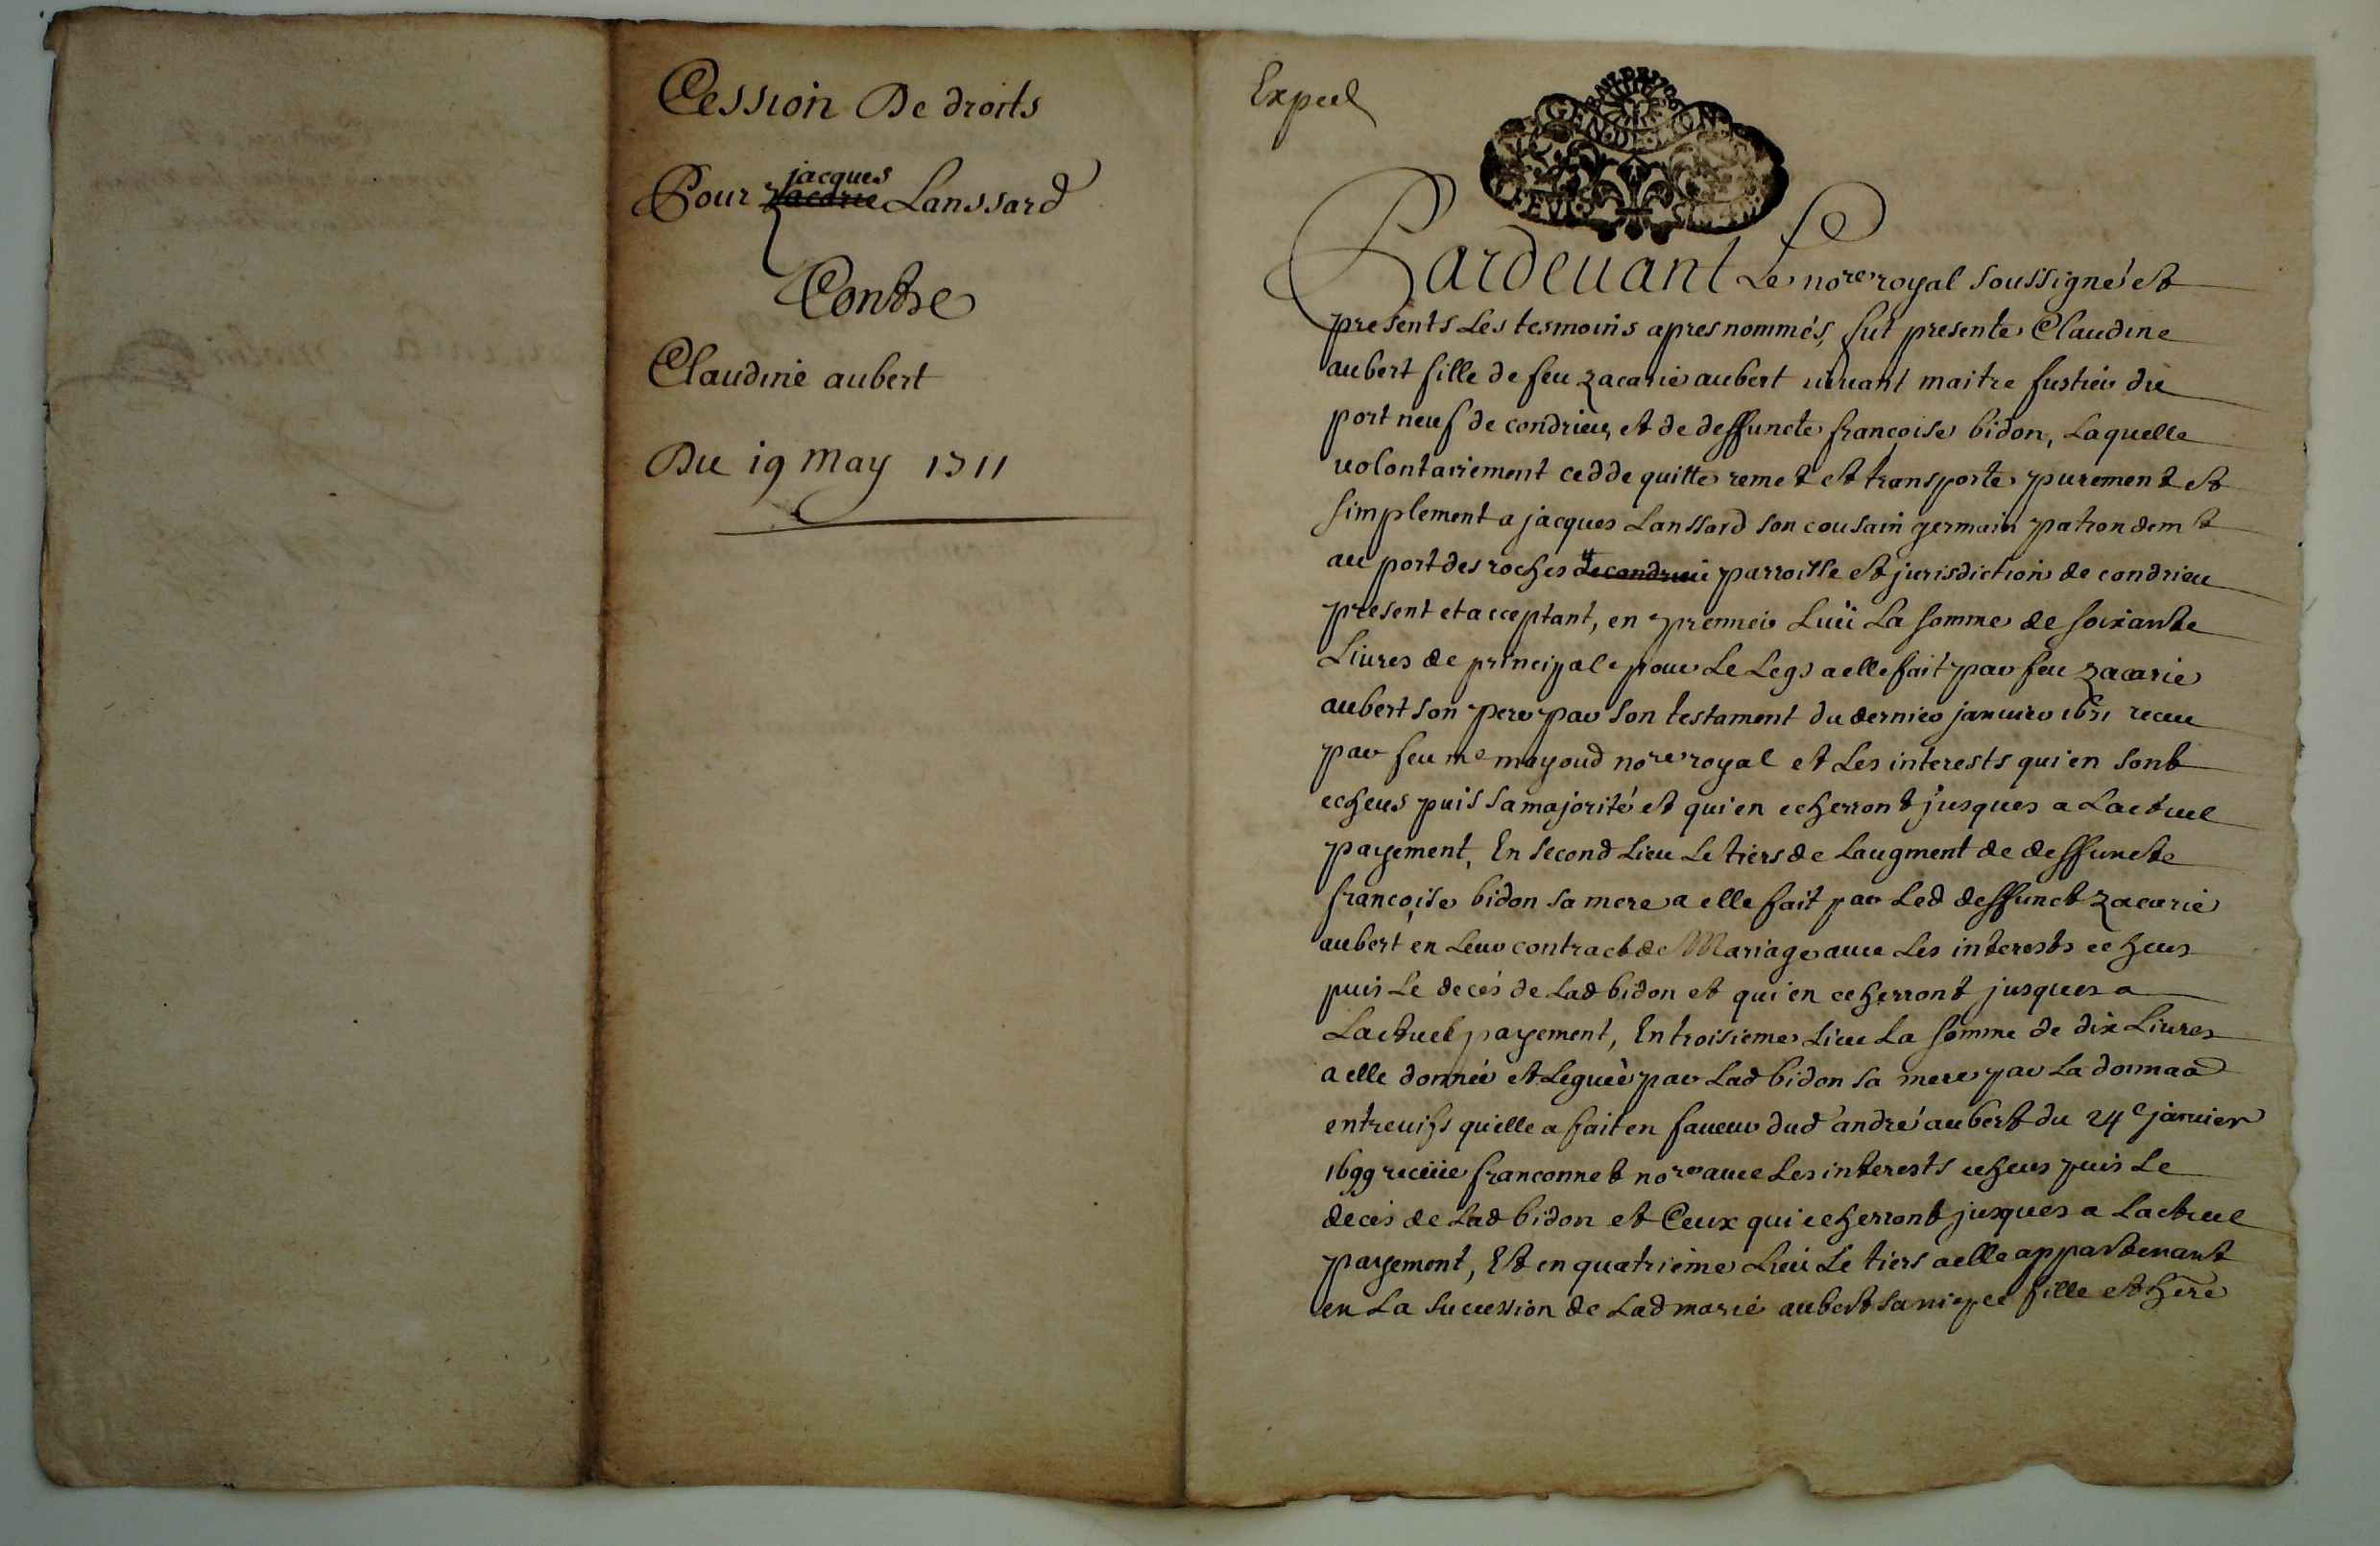 Cession De droits
jacques
Pour zacarie Lanssard
Contre
Claudine aubert
Du 19 May 1711
Exped
Pardeuant Le nore royal soussigné et
presents Les tesmoins apres nommés, fut presente Claudine
aubert fille de feu zacarie aubert uiuant maitre fustier du
port neuf de condrieu, et de deffuncte françoise bidon, Laquelle
uolontairement cedde quitte remet et transporte purement et
simplement a jacques Lanssard son cousain germain patron demt
au port des roches de condrieu parroisse et jurisdiction de condrieu
present et acceptant, en premier Lieu La somme de soixante
Liures de principal pour Le Legs a elle fait par feu zacarie
aubert son pere par son testament du dernier januier 1671 receu
par feu me mayoud nore royal et Les interests qui en sont
echeus puis sa majorité et qui en echerront jusques a Lactuel
payement, En second Lieu Le tiers de Laugment de deffuncte
françoise bidon sa mere a elle fait par Led deffunct zacarie
aubert en Leur contract de Mariage auec Les interests echeus
puis Le decés de Lad bidon et qui en echerront jusques a
Lactuel payement, En troisieme Lieu La somme de dix Liures
a elle donnée et Leguée par Lad bidon sa mere par La donnaon
entreuifs qu'elle a fait en faueur dud andré aubert du 24e januier
1699 receüe franconnet nore auec Les interests echeus puis Le
decés de Lad bidon et Ceux qui echerront jusques a Lactuel
payement, Et en quatrieme Lieu Le tiers a elle appartenant
en La sucession de Lad marie aubert sa niepce fille et here